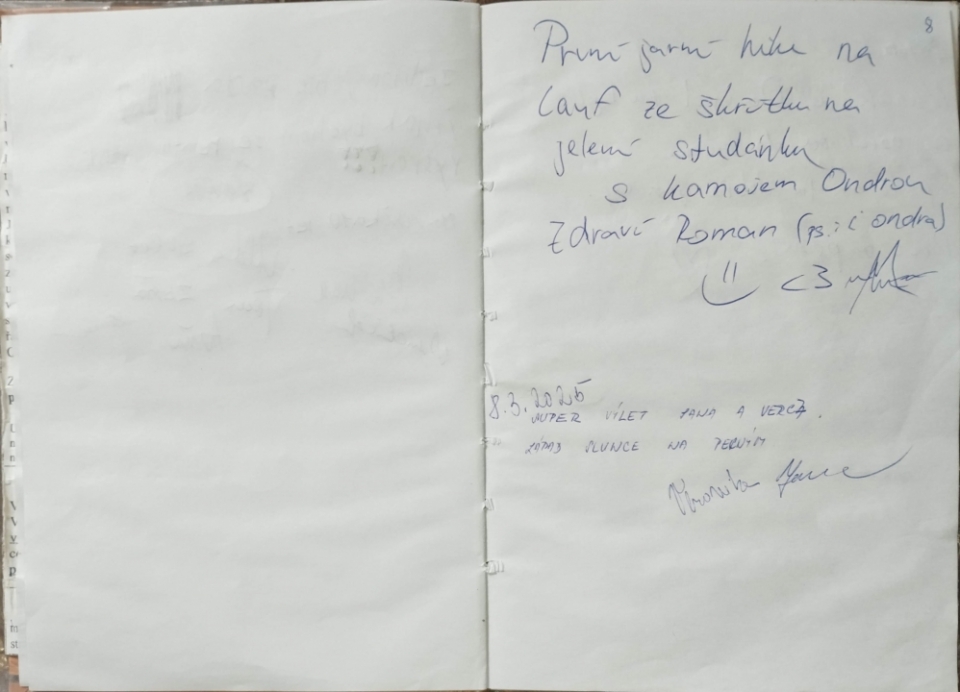 8
První jarní hike na
Lauf ze škrítku na
jelení studánku
s kamošem Ondrou
Zdraví Roman (ps.: i ondra)
<3
8.3.2025
SUPER VÍLET JANA A VERČA.
ZÁPAD SLUNCE NA
Veronika Jana